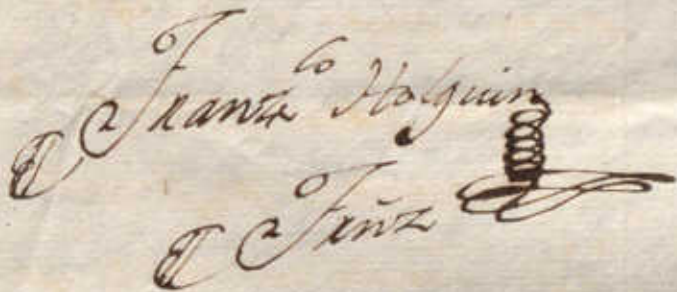 Franz.co Holguin
Frñz